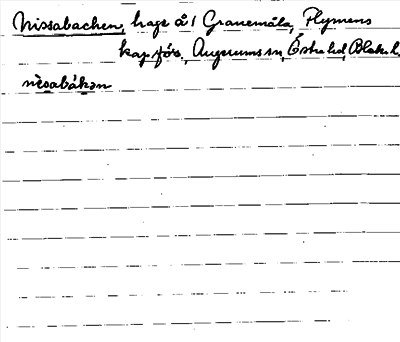 Nissabacken, hage å 1 Granemåla, Flymens
kap.förs., Augerums sn, Östra hd, Blek. l.
nisabákən